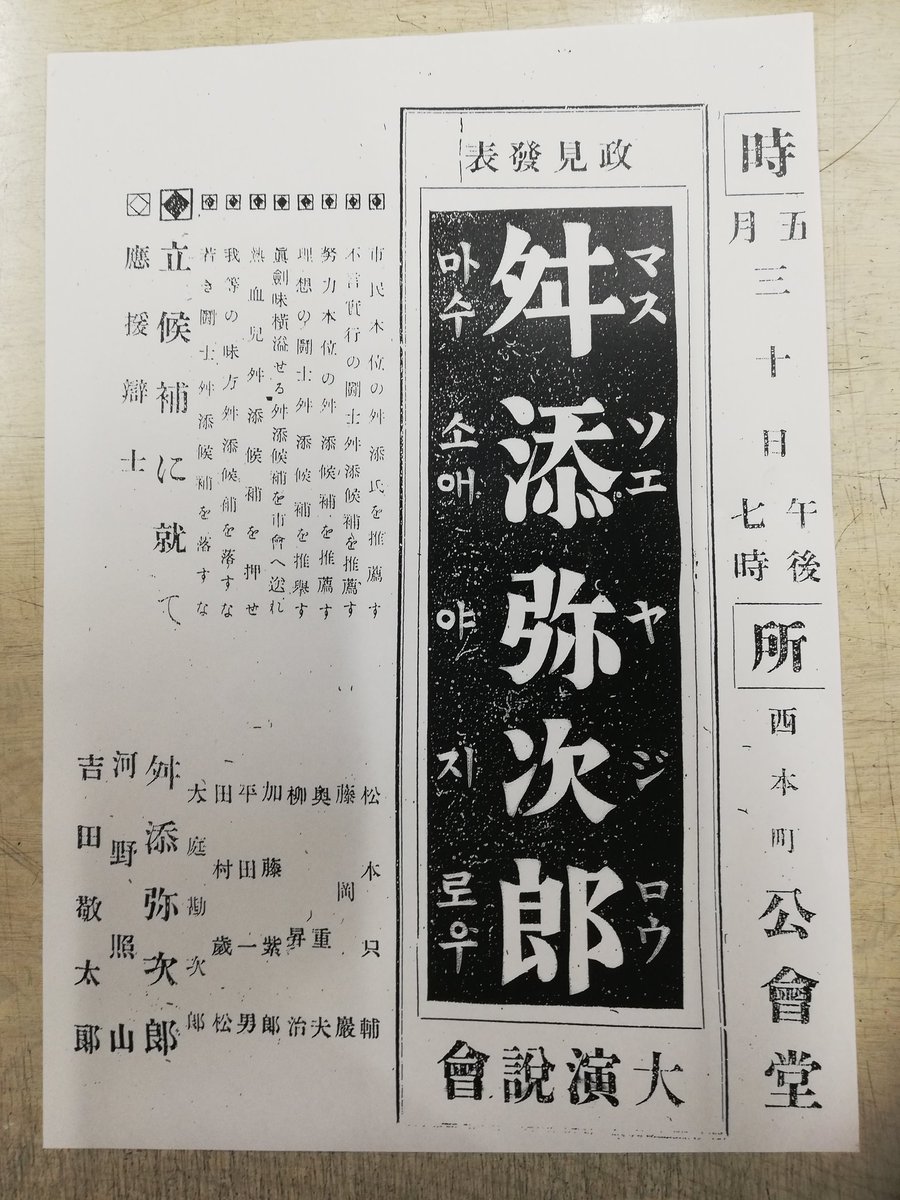 時
五月三十日
午後七時
所
西本町
公會堂
政見發表
マスソエヤジロウ
舛添弥次郎
마수소애야지로우
大演說會
市民本位の舛添氏を推薦す 松本只輔
不言實行の闘士舛添候補を推薦す 藤岡巖
努力本位の舛添候補を推薦す 奥重夫
理想の闘士舛添候補を推擧す 柳昇治
眞劍味横溢せる舛添候補を市會へ送れ 加藤紫郎
熱血兒舛添候補を押せ 平田一男
我等の味方舛添候補を落すな 田村歲松
若き闘士舛添候補を落すな 大庭勘次郎
立候補に就て 舛添弥次郎
應援辯士 河野照山
吉田敬太郎